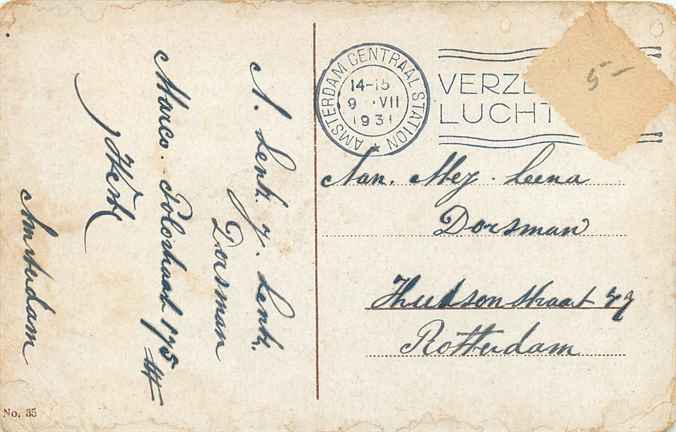 A. Lenk. J. Lenk.
Dorsman
Marco. Polostraat 175
Amsterdam
No. 35
AMSTERDAM CENTRAAL STATION
14-15
9 VII
1931
VERZE
LUCHT
5-
Aan. Mej. Leena
Dorsman
Hudsonstraat
Rotterdam